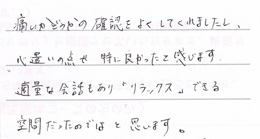 痛いかどうかの確認をよくしてくれましたし、
心遣いの点で特に良かったと感じます。
適量な会話もあり「リラックス」できる
空間だったのではと思います。